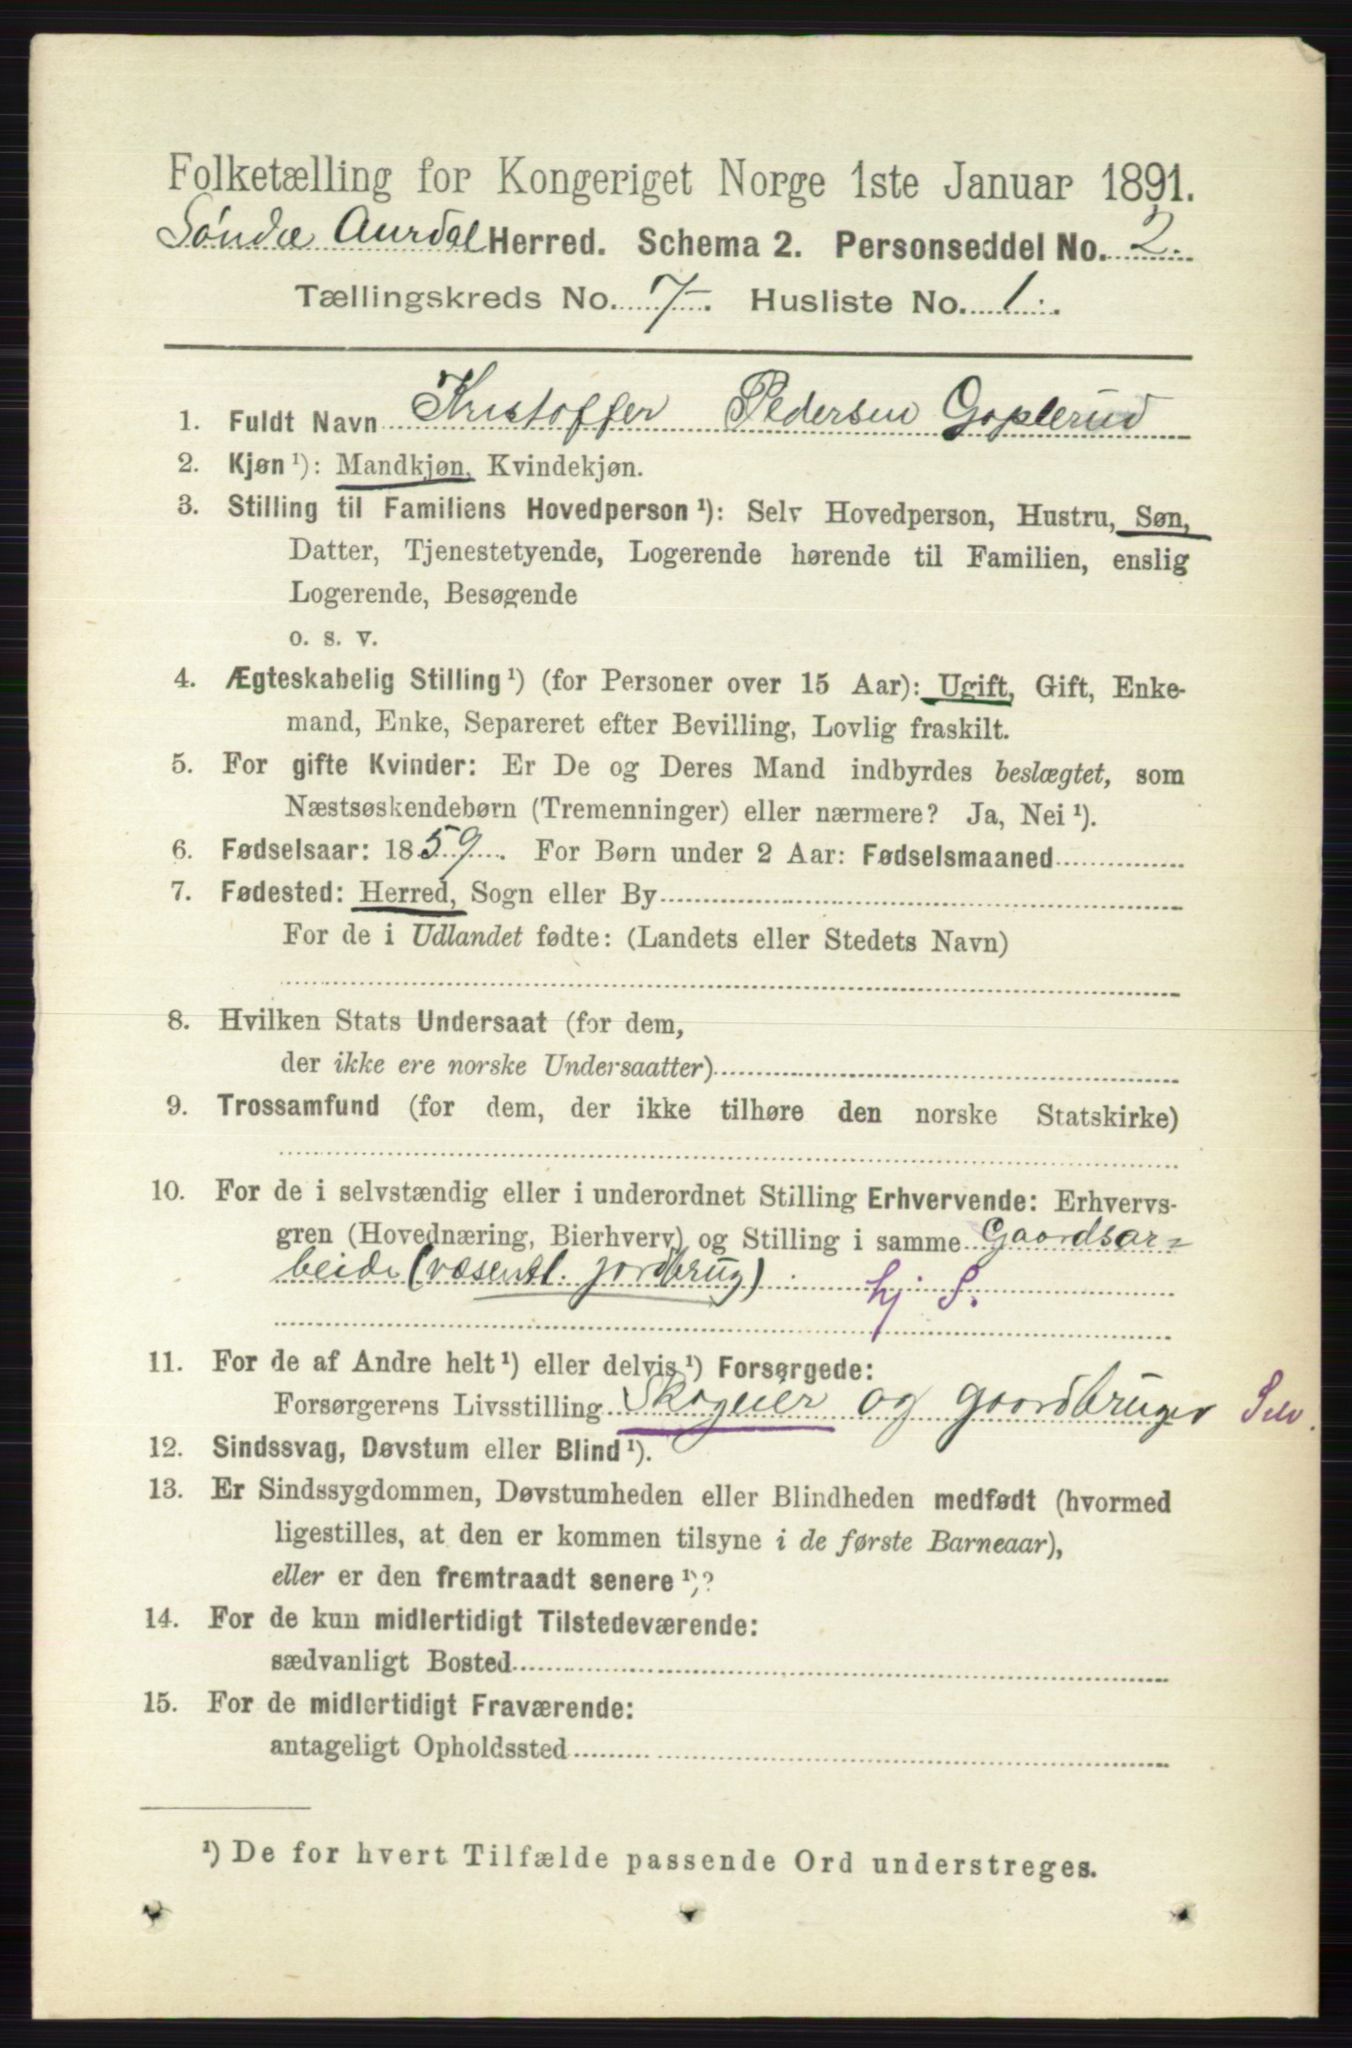 Folketælling for Kongeriget Norge 1ste Januar 1891.
Søndre Aurdal Herred. Schema 2. Personseddel No. 2.
Tællingskreds No. 7. Husliste No. 1.
1. Fuldt Navn Kristoffer Pedersen Goplerud
2. Kjøn ¹): Mandkjøn, Kvindekjøn.
3. Stilling til Familiens Hovedperson ¹): Selv Hovedperson, Hustru, Søn,
Datter, Tjenestetyende, Logerende hørende til Familien, enslig
Logerende, Besøgende
o. s. v.
4. Ægteskabelig Stilling ¹) (for Personer over 15 Aar): Ugift, Gift, Enke-
mand, Enke, Separeret efter Bevilling, Lovlig fraskilt.
5. For gifte Kvinder: Er De og Deres Mand indbyrdes beslægtet, som
Næstsøskendebørn (Tremenninger) eller nærmere? Ja, Nei ¹).
6. Fødselsaar: 1859. For Børn under 2 Aar: Fødselsmaaned
7. Fødested: Herred, Sogn eller By
For de i Udlandet fødte: (Landets eller Stedets Navn)
8. Hvilken Stats Undersaat (for dem,
der ikke ere norske Undersaatter)
9. Trossamfund (for dem, der ikke tilhøre den norske Statskirke)
10. For de i selvstændig eller i underordnet Stilling Erhvervende: Erhvervs-
gren (Hovednæring, Bierhverv) og Stilling i samme Gaardsar=
beide (væsentl. jordbrug) hj S.
11. For de af Andre helt ¹) eller delvis ¹) Forsørgede:
Forsørgerens Livsstilling Skogeier og gaardbruger Selv.
12. Sindssvag, Døvstum eller Blind ¹).
13. Er Sindssygdommen, Døvstumheden eller Blindheden medfødt (hvormed
ligestilles, at den er kommen tilsyne i de første Barneaar),
eller er den fremtraadt senere ¹)?
14. For de kun midlertidigt Tilstedeværende:
sædvanligt Bosted
15. For de midlertidigt Fraværende:
antageligt Opholdssted
¹) De for hvert Tilfælde passende Ord understreges.